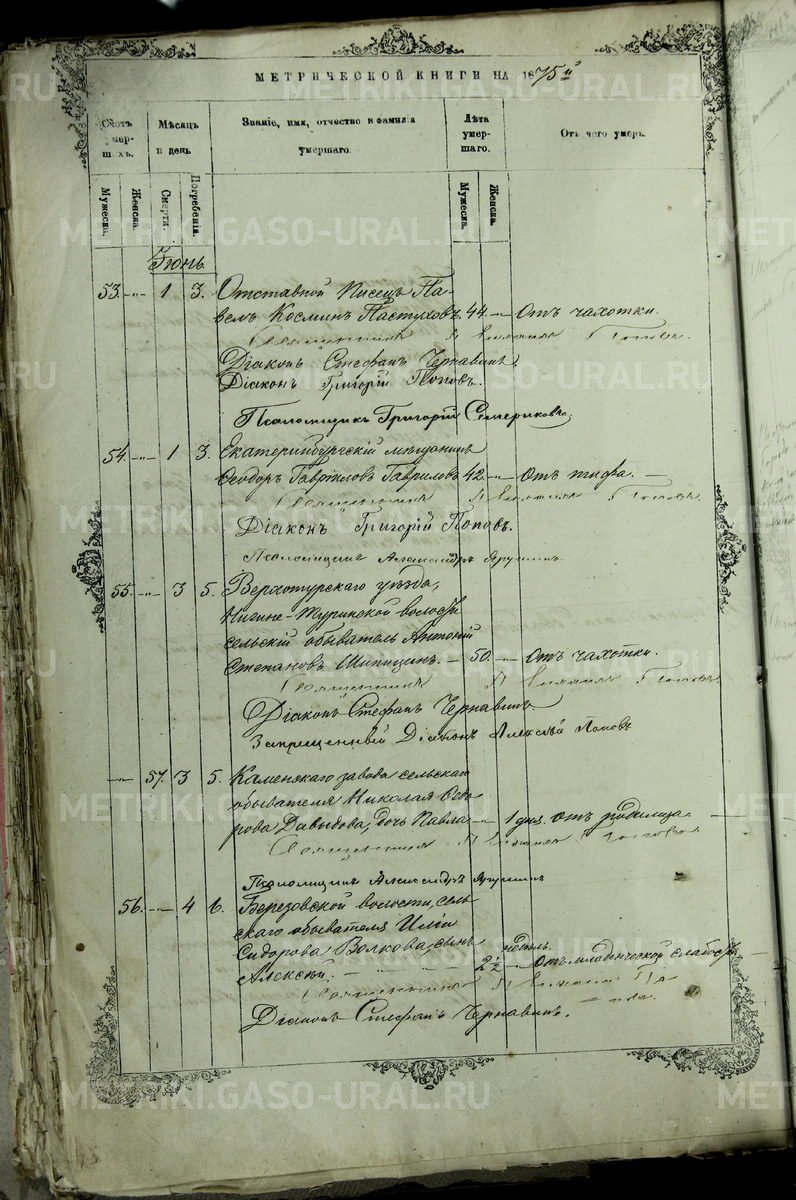 МЕТРИЧЕСКОЙ КНИГИ НА 1875й
Счетъ умершихъ.
Мѣсяцъ и день
Званіе, имя, отчество и фамилія умершаго.
Лѣта умершаго.
Отъ чего умеръ.
Мужеска.
Женска.
Смерти.
Погребенія.
Мужеска.
Женска.
Іюнь.
53. —„— 1 3. Отставной Писецъ Па-
велъ Космин Пастуховъ. 44. — Отъ чахотки.
Священникъ Попов
Діаконъ Стефанъ Чернавинъ.
Діаконъ Григорій Поповъ.
Псаломщикъ Григорій Семериковъ
54. —„— 1 3. Екатеринбургскій мѣщанинъ
Ѳеодоръ Гавріиловъ Гавриловъ 42. — Отъ тифа. —
Священникъ Поповъ.
Діаконъ Григорій Поповъ.
Псаломщикъ Александръ
55. —„— 3 5. Верхотурскаго уѣзда,
Нижне-Туринской волости
сельскій обыватель Антоній
Степановъ Шипицинъ. — 50. — Отъ чахотки.
Священникъ Поповъ
Діаконъ Стефанъ Чернавинъ.
Запрещенный Діаконъ Алексѣй Поповъ
—„— 57. 3 5. Каменскаго завода сельскаго
обывателя Николая Ѳедо-
рова Давыдова, дочь Павла — 1 дня. отъ родимца.
Священникъ Поповъ
Псаломщикъ Александръ
56. —„— 4 6. Березовской волости, сель-
скаго обывателя Иліи
Сидорова Волкова, сынъ недѣль.
Алексѣй. — 2½ — Отъ младенческой слабости
Священникъ По-
пов.
Діаконъ Стефанъ Чернавинъ.
METRIKI.GASO-URAL.RU